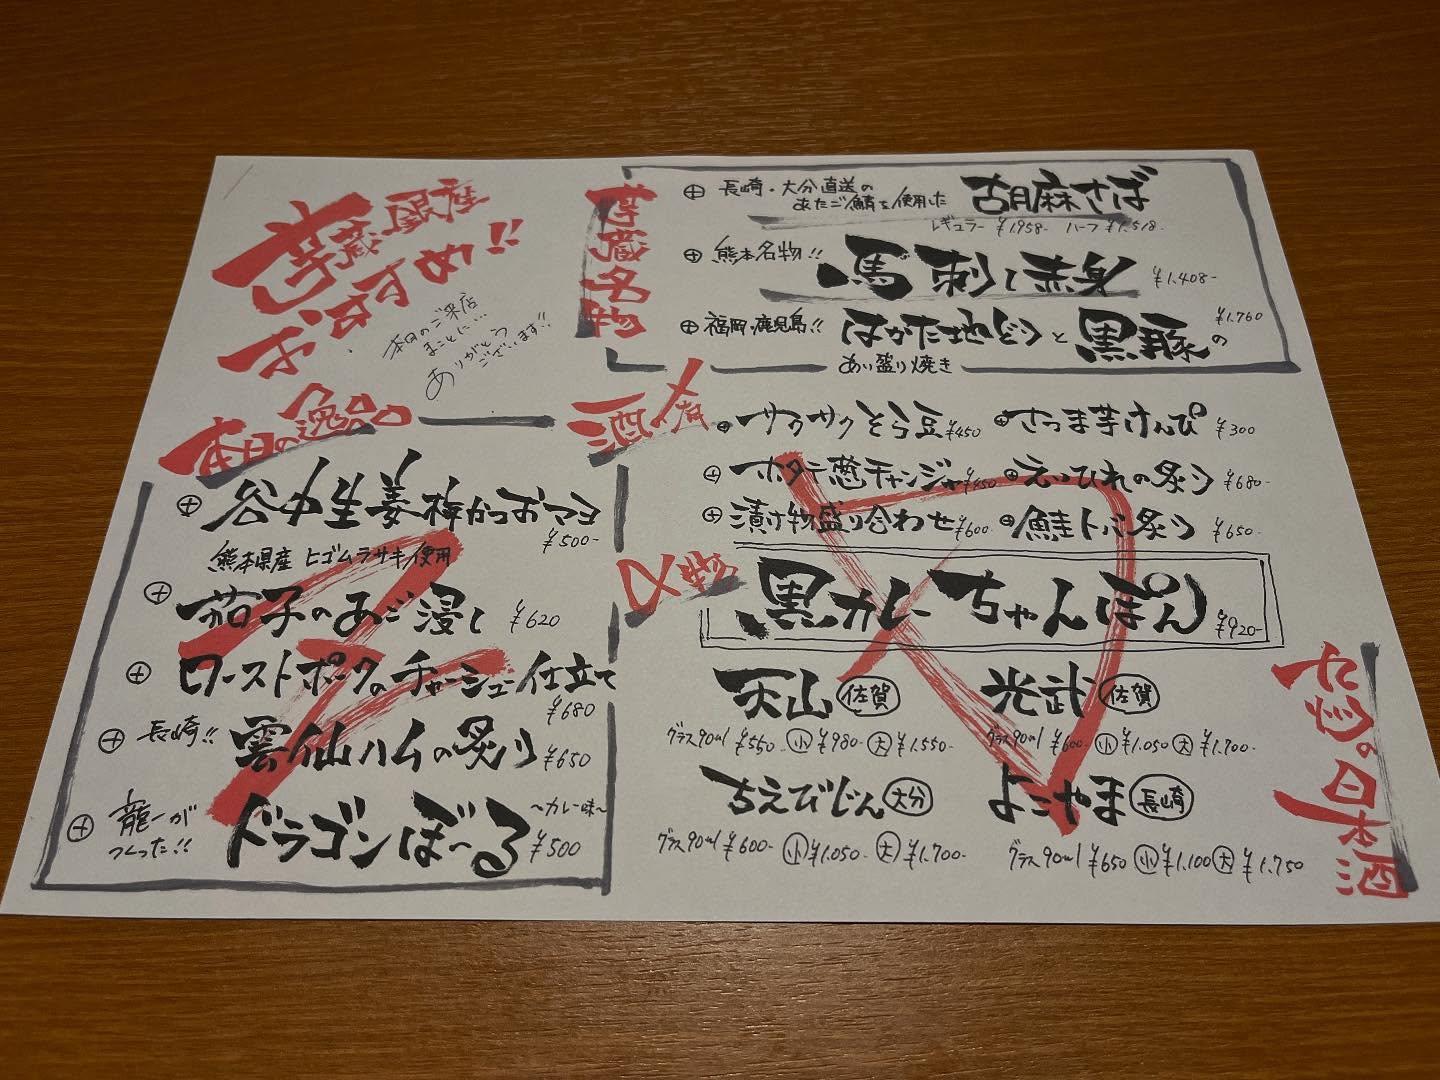 芋蔵銀座
おすすめ!!
本日のご来店
まことに…
ありがとう
ございます!!
芋蔵名物
長崎・大分直送の
あたご鯖を使用した
胡麻さば
レギュラー ¥1,958- ハーフ ¥1,518-
熊本名物!!
馬刺し赤身 ¥1,408-
福岡・鹿児島!!
はかた地どりと黒豚の ¥1,760
あい盛り焼き
本日の逸品
谷中生姜梅かつおマヨ
¥500-
熊本県産 ヒゴムラサキ使用
茄子のあご浸し ¥620
ローストポークのチャーシュー仕立て
¥680
長崎!! 雲仙ハムの炙り ¥650
龍一が
つくった!!
ドラゴンぼ～る ～カレー味～ ¥500
酒の肴
サクサクとら豆 ¥450 さつま芋けんぴ ¥300
ホタテ チャンジャ ¥450 えいひれの炙り ¥680-
漬け物盛り合わせ ¥600 鮭トバ炙り ¥650-
〆物
黒カレーちゃんぽん ¥920-
九州の日本酒
天山 佐賀
グラス90ml ¥560- 小 ¥980- 大 ¥1,550-
光武 佐賀
グラス90ml ¥600- 小 ¥1,050 大 ¥1,700-
ちえびじん 大分
グラス90ml ¥600- 小 ¥1,050- 大 ¥1,700-
よこやま 長崎
グラス90ml ¥650 小 ¥1,100 大 ¥1,750